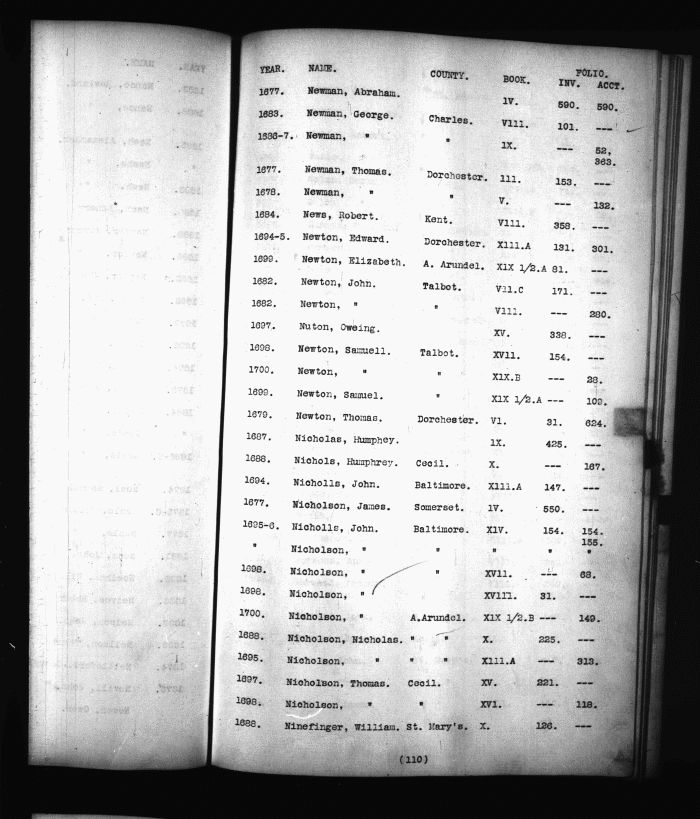 YEAR. NAME. COUNTY. BOOK. FOLIO.
INV. ACCT.
1677. Newman, Abraham. 1V. 590. 590.
1683. Newman, George. Charles. V111. 101. ---
1686-7. Newman, " " 1X. --- 52,
363.
1677. Newman, Thomas. Dorchester. 111. 153. ---
1678. Newman, " " V. --- 132.
1684. News, Robert. Kent. V111. 358. ---
1694-5. Newton, Edward. Dorchester. X111.A 131. 301.
1699. Newton, Elizabeth. A. Arundel. X1X 1/2.A 81. ---
1682. Newton, John. Talbot. V11.C 171. ---
1682. Newton, " " V111. --- 280.
1697. Nuton, Oweing. XV. 338. ---
1698. Newton, Samuell. Talbot. XV11. 154. ---
1700. Newton, " " X1X.B --- 28.
1699. Newton, Samuel. " X1X 1/2.A --- 102.
1679. Newton, Thomas. Dorchester. V1. 31. 624.
1687. Nicholas, Humphey. 1X. 425. ---
1688. Nichols, Humphrey. Cecil. X. --- 167.
1694. Nicholls, John. Baltimore. X111.A 147. ---
1677. Nicholson, James. Somerset. 1V. 550. ---
1695-6. Nicholls, John. Baltimore. X1V. 154. 154.
155.
" Nicholson, " " " " "
1698. Nicholson, " " XV11. --- 68.
1698. Nicholson, " XV111. 31. ---
1700. Nicholson, " A.Arundel. X1X 1/2.B --- 149.
1688. Nicholson, Nicholas. " " X. 225. ---
1695. Nicholson, " " " X111.A --- 313.
1697. Nicholson, Thomas. Cecil. XV. 221. ---
1698. Nicholson, " " XV1. --- 118.
1688. Ninefinger, William. St. Mary's. X. 126. ---
(110)